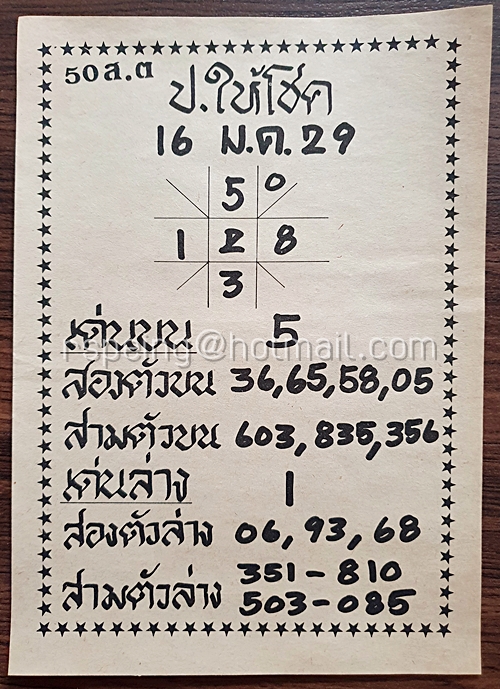 50 ส.ต
ป.ให้โชค
16 ม.ค. 29
5 0
1 2 8
3
เด่นบน 5
สองตัวบน 36,65,58,05
สามตัวบน 603,835,356
เด่นล่าง 1
สองตัวล่าง 06,93,68
สามตัวล่าง 351-810
503-085
@hotmail.com